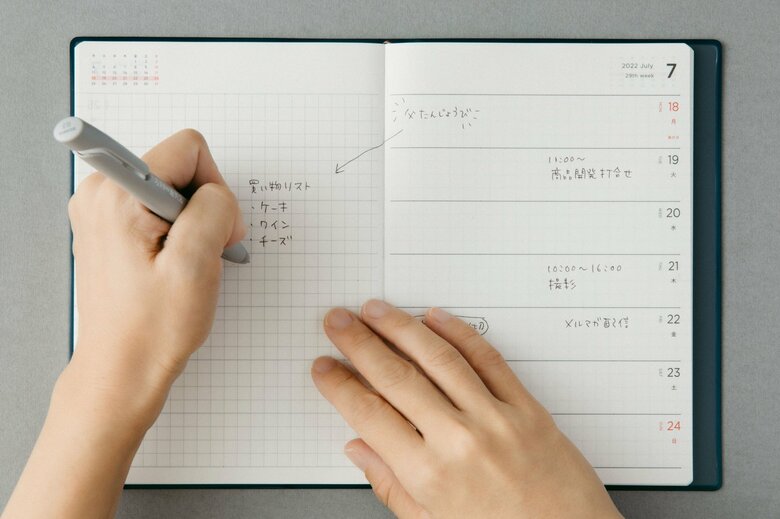 2022 July
29th week
7
父たんじょうび
18
月
買い物リスト
・ケーキ
・ワイン
・チーズ
11:00〜
商品開発打合せ
19
火
20
水
10:00〜16:00
撮影
21
木
メルマガ配信
22
金
23
土
24
日